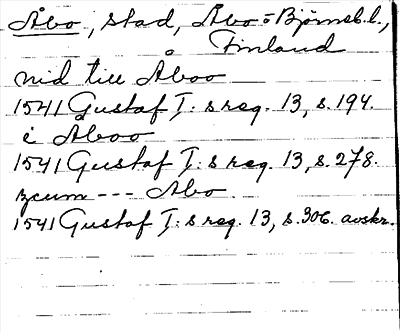 Åbo, stad, Åbo-Björneb. l.,
Finland
nid till Åboo
1541 Gustaf I:s reg. 13, s. 194.
i Åboo
1541 Gustaf I:s reg. 13, s. 278.
--- Åbo
1541 Gustaf I:s reg. 13, s. 306. avskr.